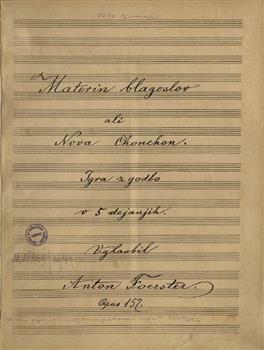 Materin blagoslov
ali
Nova Chonchon.
Igra z godbo
v 5 dejanjih.
Uglasbil
Anton Foerster.
Opus 157.